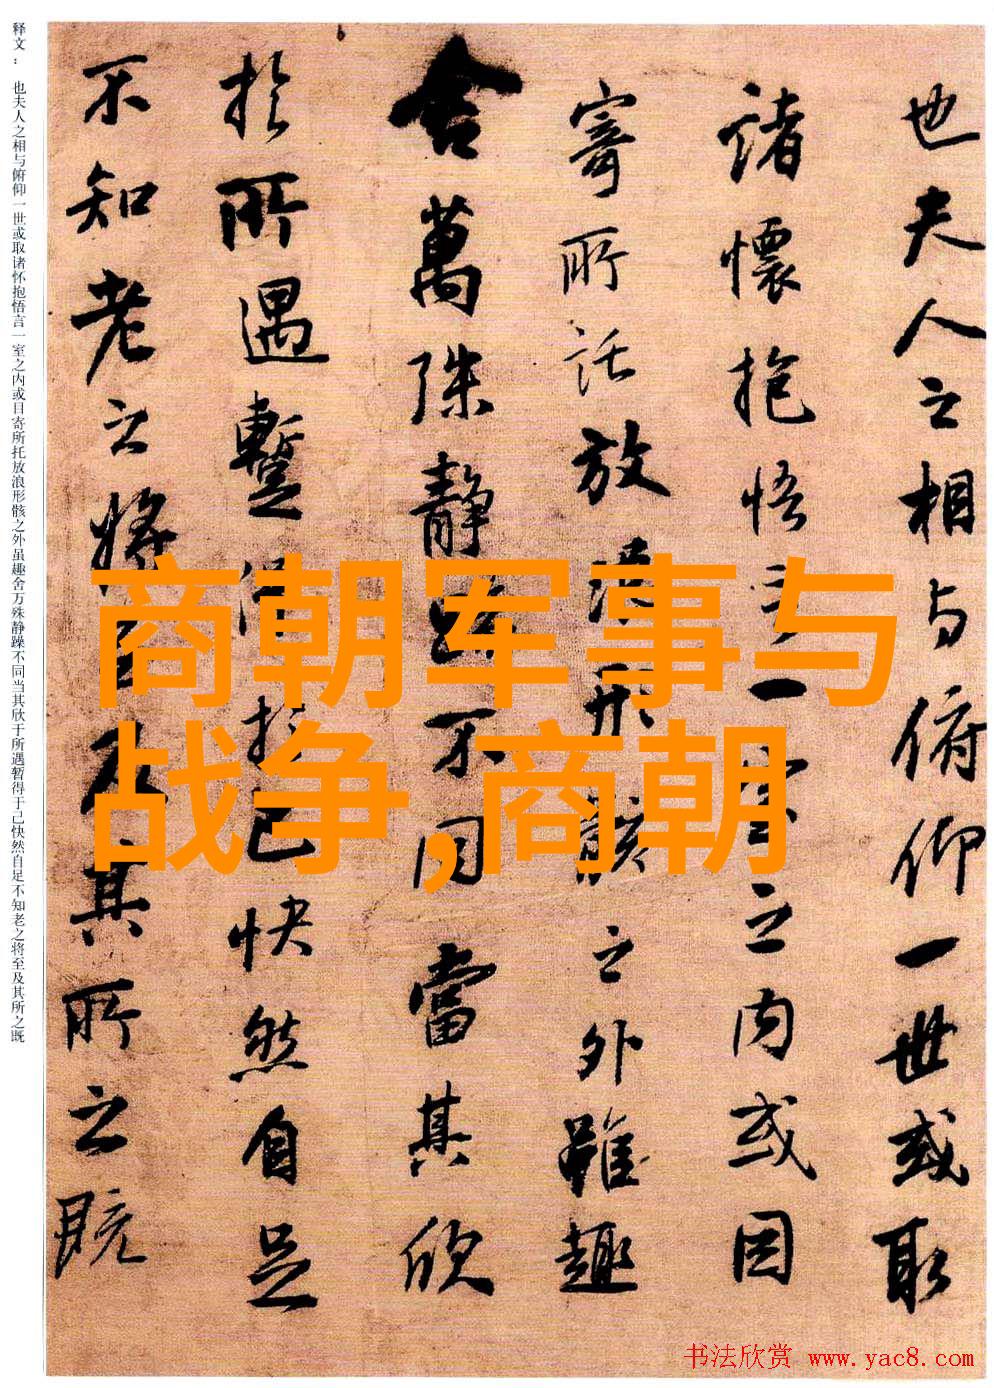 也夫人之相与俯仰一世或取
諸懷抱悟言一室之内或因
寄所託放浪形骸之外雖趣
舍萬殊静不同當其欣
於所遇暫得於己快然自足
不知老之將及其所之既
释文：也夫人之相与俯仰一世或取诸怀抱悟言一室之内或目寄所托放浪形骸之外虽趣舍万殊静躁不同当其欣于所遇暂得于己快然自足不知老之将至及其所之既
商朝军事与
战争,商朝
书法欣赏 www.yac8.com